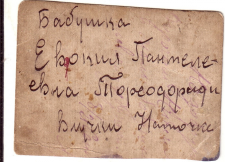 Бабушка
Евокия Пантеле-
евна Тореодориди
внучки Наточке